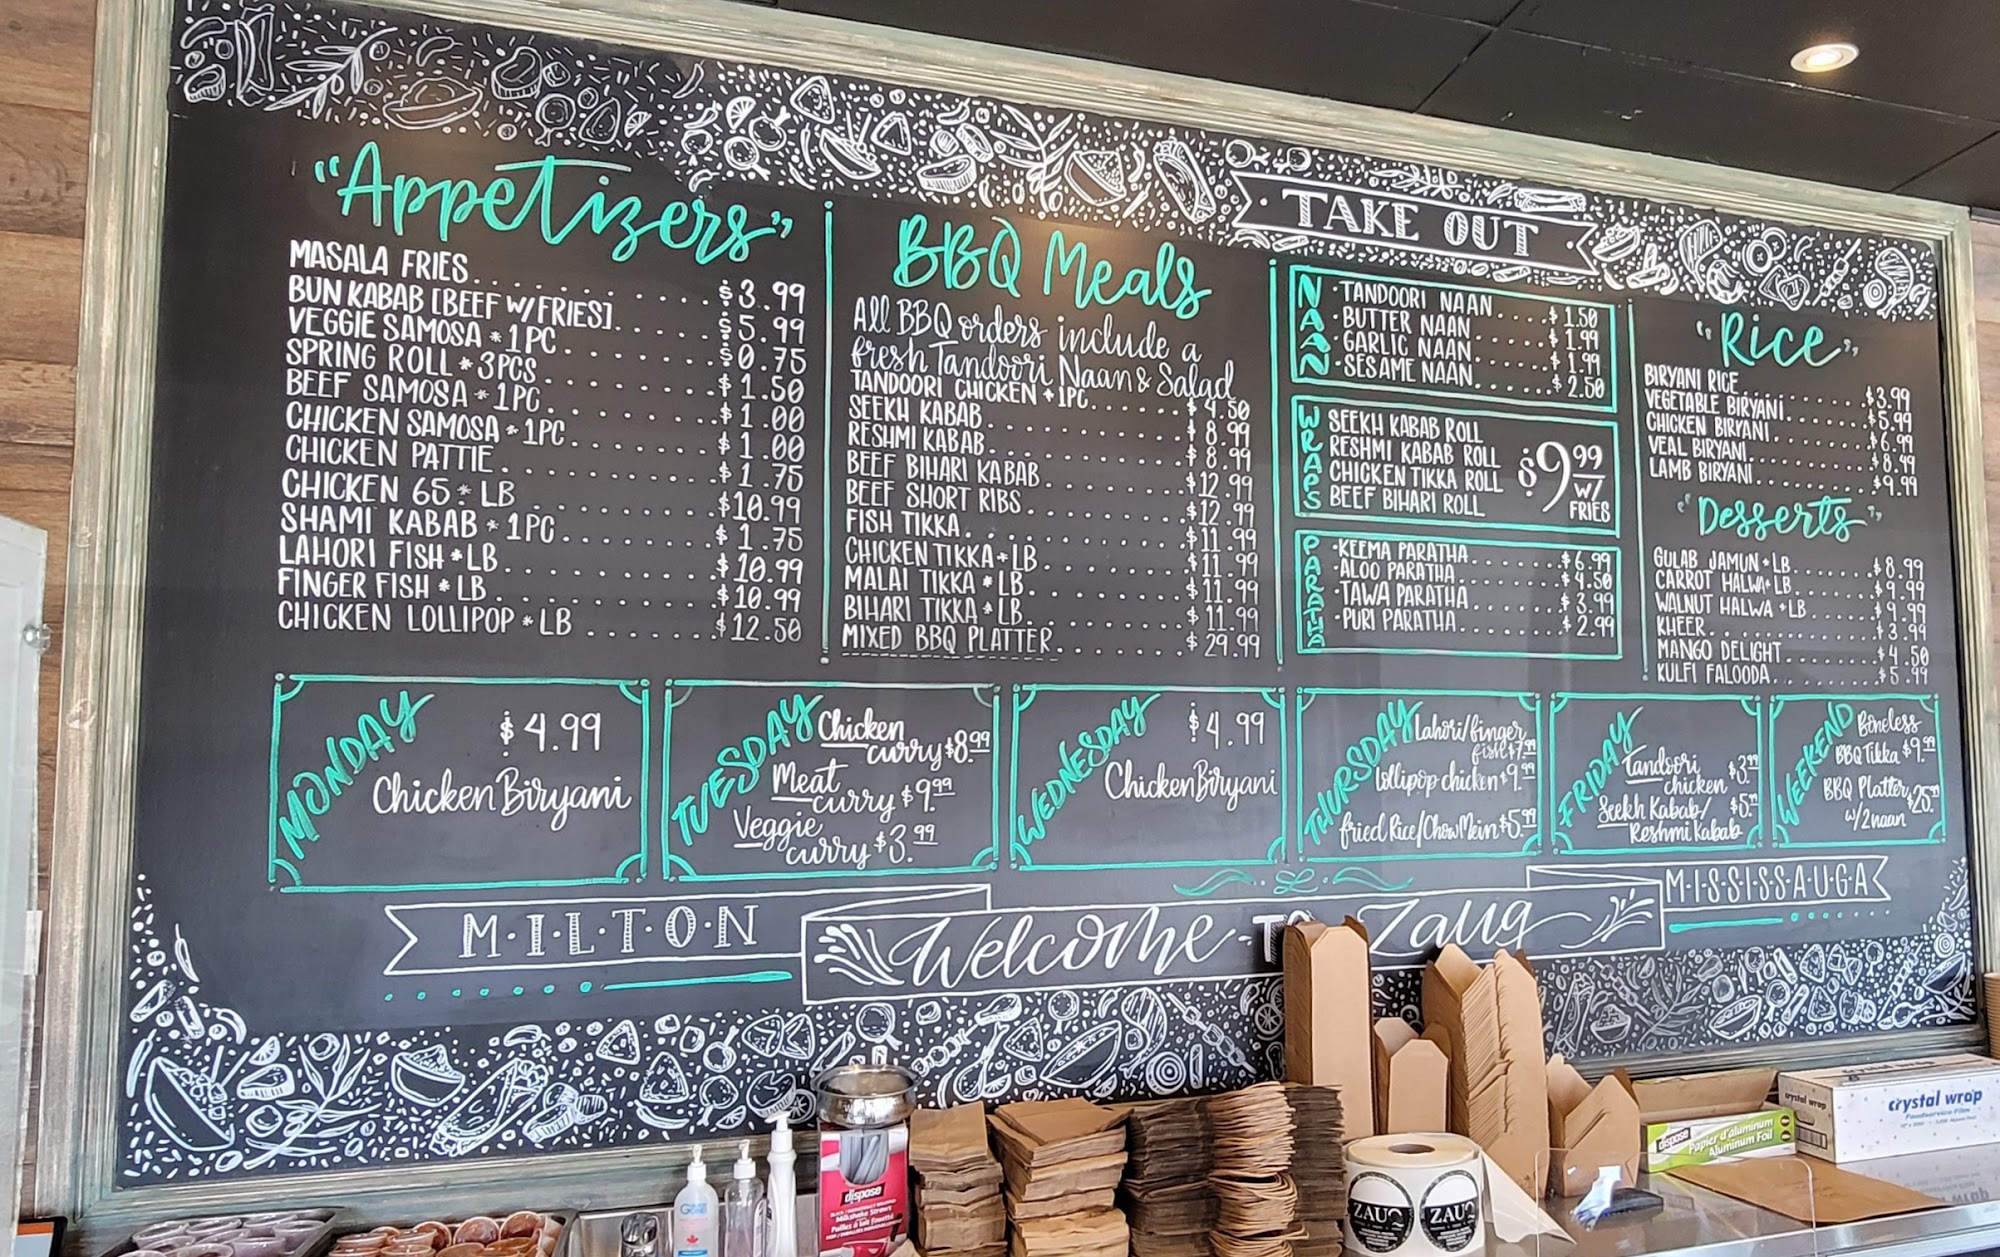 "Appetizers"
MASALA FRIES . . . . . . . . . . $3.99
BUN KABAB [BEEF W/FRIES] . . . . $5.99
VEGGIE SAMOSA * 1PC . . . . . . . $0.75
SPRING ROLL * 3PCS . . . . . . . . $1.50
BEEF SAMOSA * 1PC . . . . . . . . $1.00
CHICKEN SAMOSA * 1PC . . . . . . . $1.00
CHICKEN PATTIE . . . . . . . . . . $1.75
CHICKEN 65 * LB . . . . . . . . . $10.99
SHAMI KABAB * 1PC . . . . . . . . $1.75
LAHORI FISH * LB . . . . . . . . . $10.99
FINGER FISH * LB . . . . . . . . . $10.99
CHICKEN LOLLIPOP * LB . . . . . . $12.50
BBQ Meals
All BBQ orders include a
fresh Tandoori Naan & Salad
TANDOORI CHICKEN * 1PC . . . . . . $4.50
SEEKH KABAB . . . . . . . . . . $8.99
RESHMI KABAB . . . . . . . . . . $8.99
BEEF BIHARI KABAB . . . . . . . $12.99
BEEF SHORT RIBS . . . . . . . . $12.99
FISH TIKKA . . . . . . . . . . . $11.99
CHICKEN TIKKA * LB . . . . . . . $11.99
MALAI TIKKA * LB . . . . . . . . $11.99
BIHARI TIKKA * LB . . . . . . . . $11.99
MIXED BBQ PLATTER . . . . . . . $29.99
TAKE OUT
NAAN
·TANDOORI NAAN . . . . $1.50
·BUTTER NAAN . . . . . $1.99
·GARLIC NAAN . . . . . $1.99
·SESAME NAAN . . . . . $2.50
WRAPS
SEEKH KABAB ROLL
RESHMI KABAB ROLL
CHICKEN TIKKA ROLL
BEEF BIHARI ROLL
$9.99
W/
FRIES
PARATHA
·KEEMA PARATHA . . . . . $6.99
·ALOO PARATHA . . . . . $4.50
·TAWA PARATHA . . . . . $3.99
·PURI PARATHA . . . . . $2.99
"Rice"
BIRYANI RICE . . . . . . . $3.99
VEGETABLE BIRYANI . . . . . $5.99
CHICKEN BIRYANI . . . . . . $6.99
VEAL BIRYANI . . . . . . . $8.99
LAMB BIRYANI . . . . . . . $9.99
"Desserts"
GULAB JAMUN * LB . . . . . $8.99
CARROT HALWA * LB . . . . . $9.99
WALNUT HALWA * LB . . . . . $9.99
KHEER . . . . . . . . . . $3.99
MANGO DELIGHT . . . . . . . $4.50
KULFI FALOODA . . . . . . . $5.99
MONDAY
$4.99
Chicken Biryani
TUESDAY
Chicken
curry $8.99
Meat
curry $9.99
Veggie
curry $3.99
WEDNESDAY
$4.99
Chicken Biryani
THURSDAY
Lahori/finger
fish $7.99
lollipop chicken $9.99
fried Rice/Chow Mein $5.99
FRIDAY
Tandoori
chicken $3.99
Seekh Kabab/ $5.99
Reshmi Kabab
WEEKEND
Boneless
BBQ Tikka $9.99
BBQ Platter $25.99
w/2naan
M·I·L·T·O·N
Welcome To Zauq
M·I·S·S·I·S·S·A·U·G·A
crystal wrap
crystal wrap
Foodservice Film
dispose
Papier d'aluminum
Aluminum Foil
dispose
Milkshake Straws
ZAUQ
ZAUQ